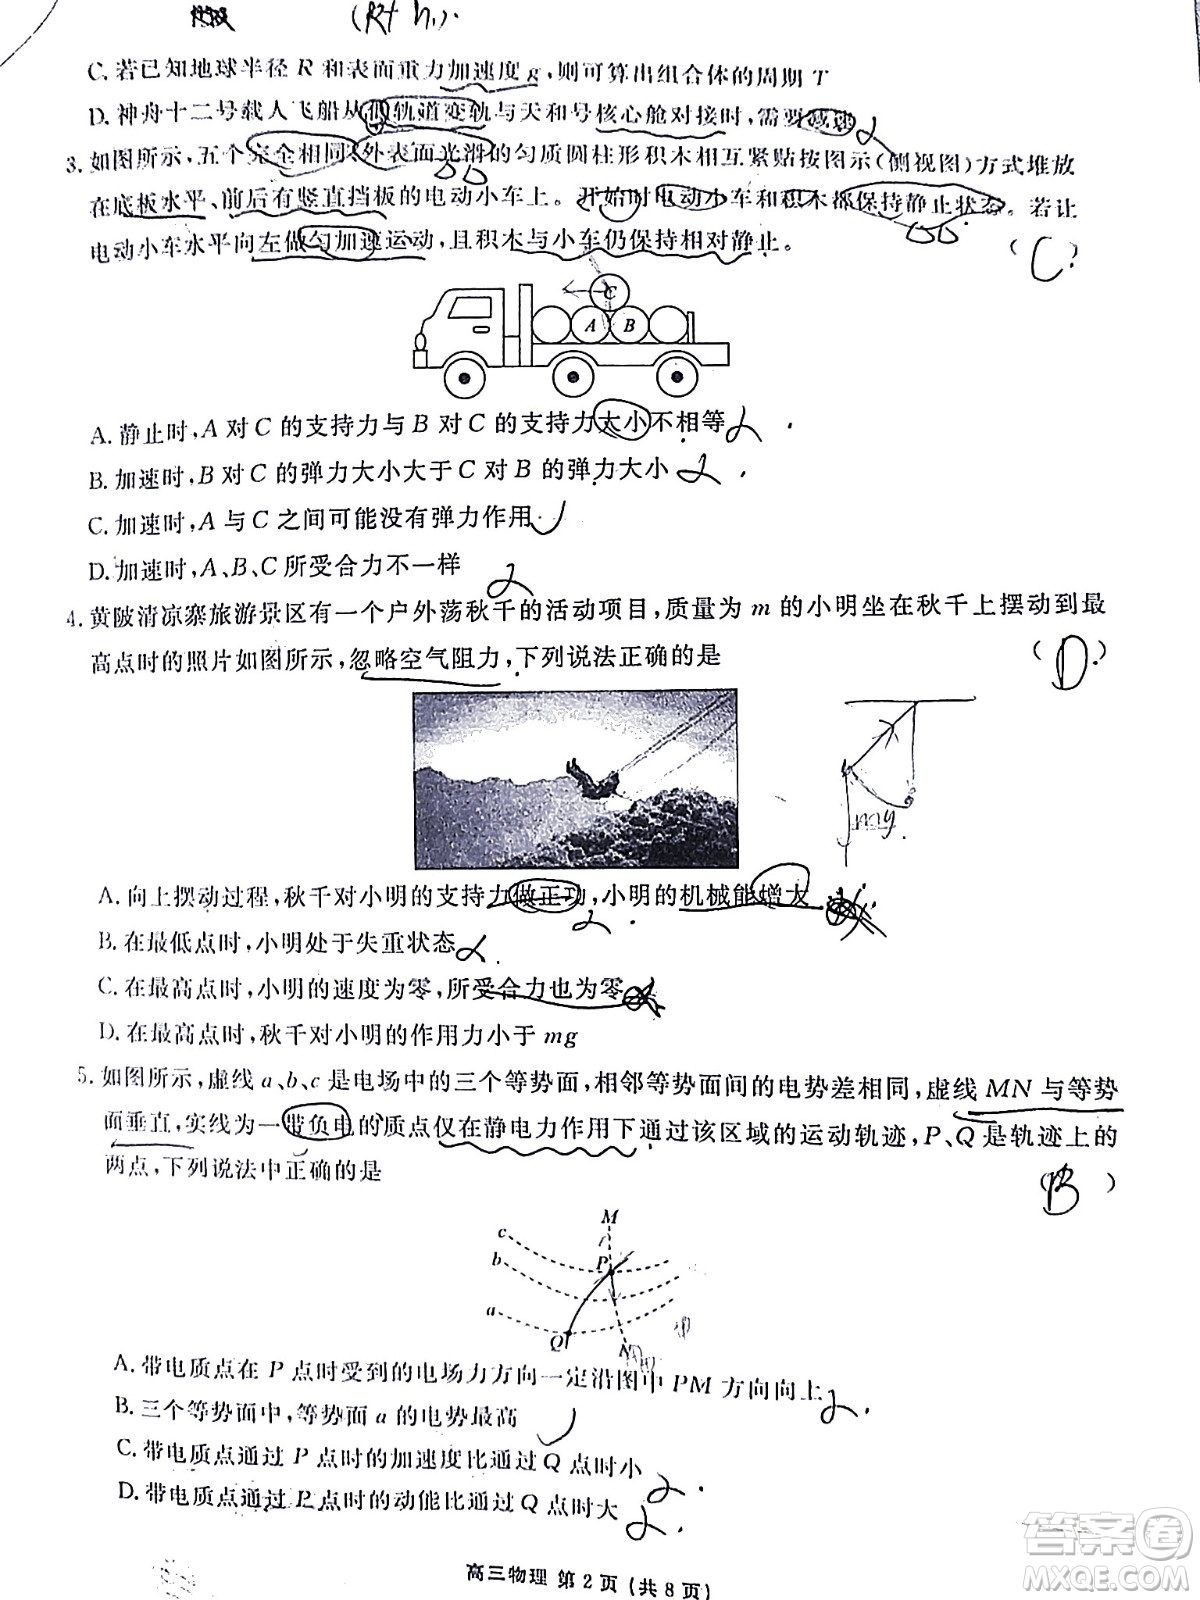 (R+h).
C. 若已知地球半径 R 和表面重力加速度 g,则可算出组合体的周期 T
D. 神舟十二号载人飞船从低轨道变轨与天和号核心舱对接时,需要减速
3. 如图所示,五个完全相同、外表面光滑的匀质圆柱形积木相互紧贴按图示(侧视图)方式堆放
在底板水平、前后有竖直挡板的电动小车上。开始时电动小车和积木都保持静止状态。若让
电动小车水平向左做匀加速运动,且积木与小车仍保持相对静止。
(C)
C
A B
A. 静止时,A 对 C 的支持力与 B 对 C 的支持力大小不相等
B. 加速时,B 对 C 的弹力大小大于 C 对 B 的弹力大小
C. 加速时,A 与 C 之间可能没有弹力作用
D. 加速时,A、B、C 所受合力不一样
4. 黄陂清凉寨旅游景区有一个户外荡秋千的活动项目,质量为 m 的小明坐在秋千上摆动到最
高点时的照片如图所示,忽略空气阻力,下列说法正确的是
(D)
mg
A. 向上摆动过程,秋千对小明的支持力做正功,小明的机械能增大
B. 在最低点时,小明处于失重状态
C. 在最高点时,小明的速度为零,所受合力也为零
D. 在最高点时,秋千对小明的作用力小于 mg
5. 如图所示,虚线 a、b、c 是电场中的三个等势面,相邻等势面间的电势差相同,虚线 MN 与等势
面垂直,实线为一带负电的质点仅在静电力作用下通过该区域的运动轨迹,P、Q 是轨迹上的
两点,下列说法中正确的是
(B)
M
c
b
P
a
Q
N
A. 带电质点在 P 点时受到的电场力方向一定沿图中 PM 方向向上
B. 三个等势面中,等势面 a 的电势最高
C. 带电质点通过 P 点时的加速度比通过 Q 点时小
D. 带电质点通过 P 点时的动能比通过 Q 点时大
高三物理 第 2 页(共 8 页)
答案卷
MXQE.COM